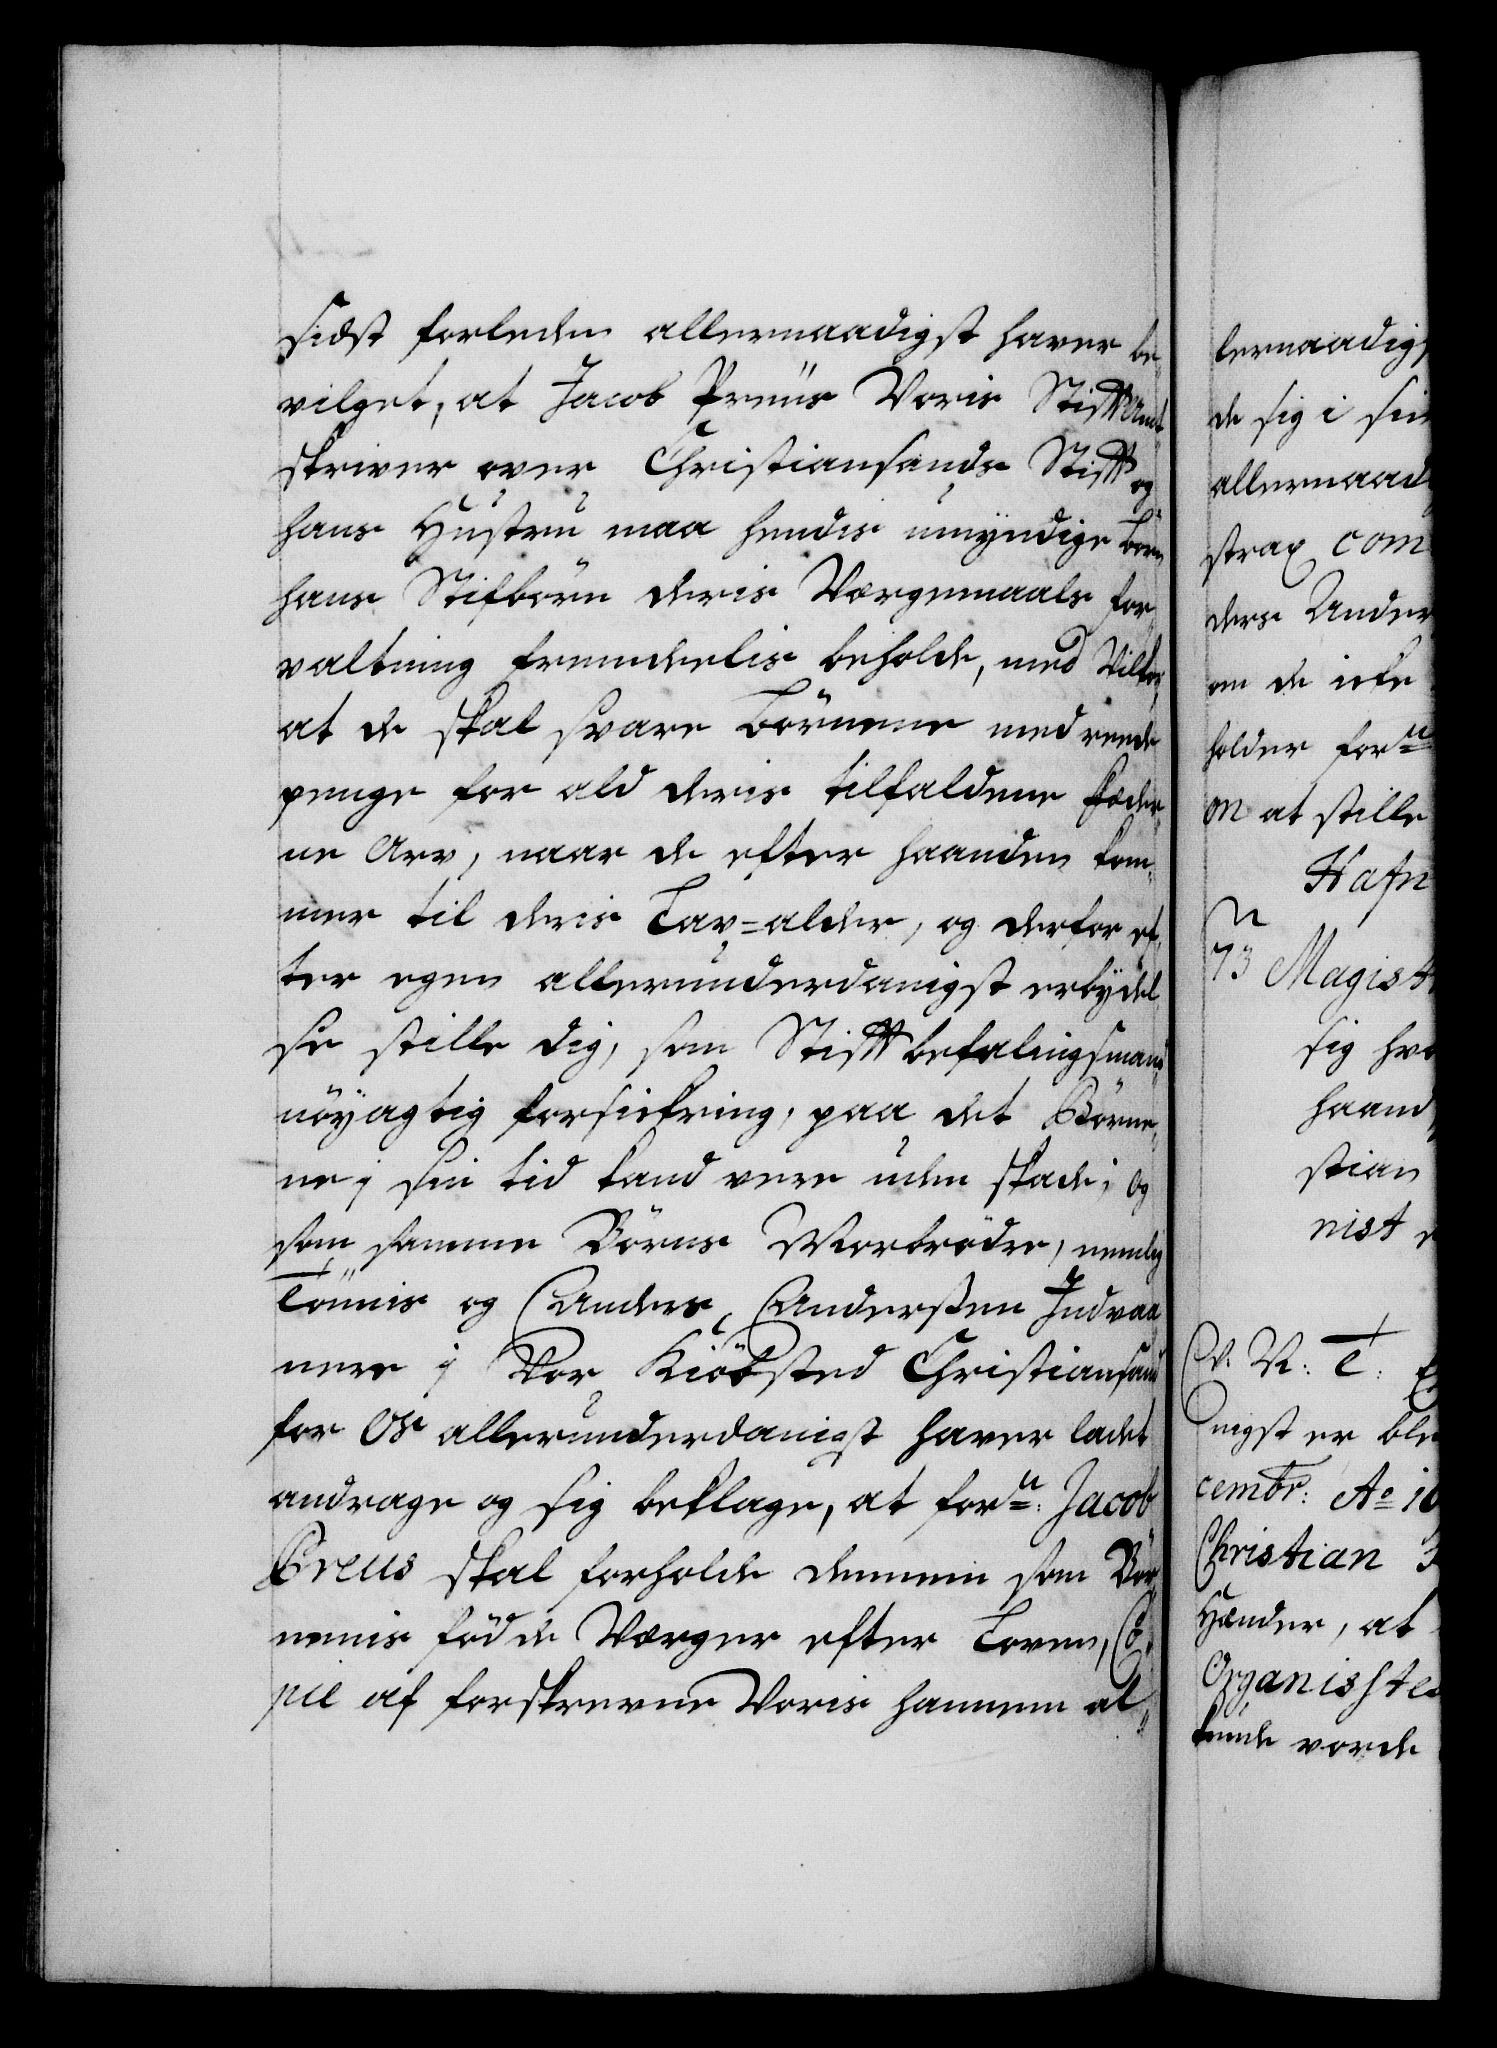 sidst forleden allernaadigst haver be
vilget, at Jacob Preüs Voris StifftAmt
skriver over Christiansands Stifft og
hans Hustru maa hendis umÿndige Børn
hans Stifbörn deris Værgemaals for
valtning fremdelis beholde, med Vilkor
at de skal svare Börnene med reede
penge for ald deris tilfaldene Fæder
ne Arv, naar de efter haanden kom,
mer til deris Lav=alder, og derfor ef,
ter egen allerunderdanigst erbÿdel
se stille dig, som Stifft befalingsmand
nöÿagtig forsickring, paa det Börne,
ne j sin tid kand vere uden skade; og
som samme Börns Morbrödre, nemlig
Tönnis og Anders Andersen Indvaa
nere j Vor Kiöbsted Christiansand
for Os allerunderdanigst haver ladet
andrage og sig beklage, at forn: Jacob
Preus skal forholde dennem som Bör
nenis födde Værger efter Loven, Co
pie af forskrevne Voris hannem al,
lernaadigs
de sig i sin
allernaad
strax com
ders Under
om de icke
holder forn
on at stille
Hafn
73 Magist
sig hve
haand
stian
nist
C. V. T. E
nigst er ble
cembr: Ao 16
Christian 3
Hænder, at
Organiste
kunde vorde